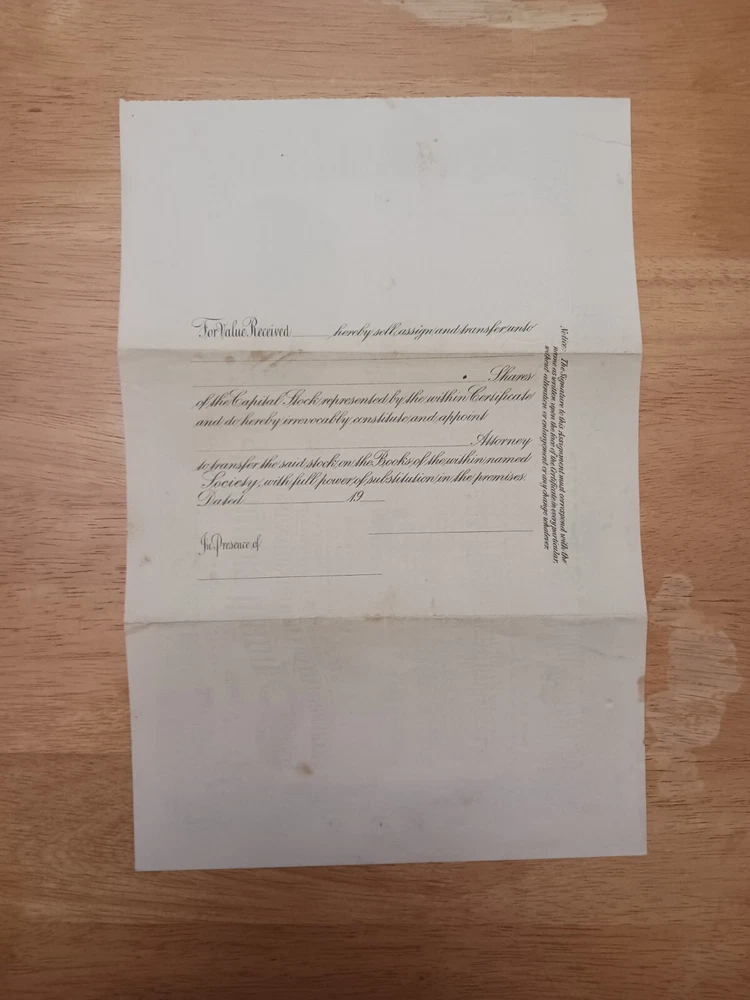 For Value Received ______ hereby sell, assign and transfer unto
Shares
of the Capital Stock represented by the within Certificate
and do hereby irrevocably constitute and appoint
Attorney
to transfer the said stock on the Books of the within named
Society, with full power of substitution in the premises.
Dated ______ 19___
In Presence of
Notice: The Signature to this Assignment must correspond with the
name as written upon the face of the Certificate in every particular,
without alteration or enlargement or any change whatever.